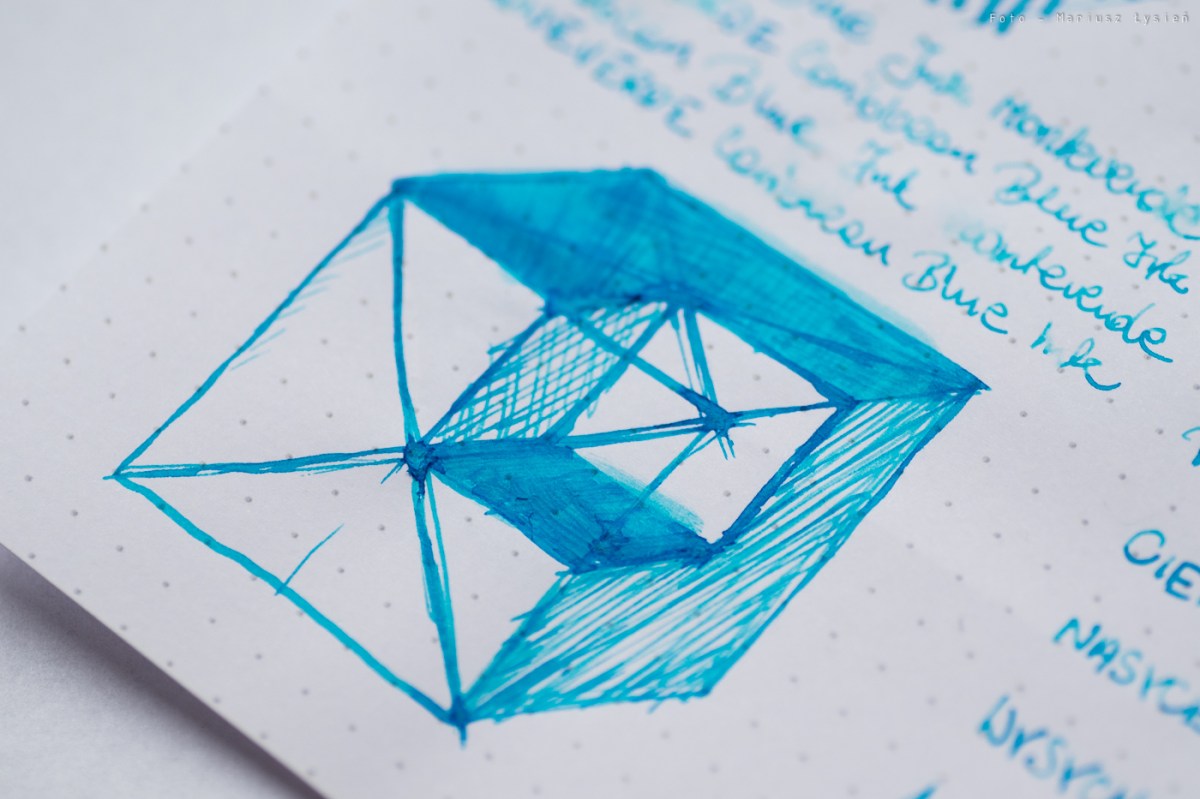 Foto - Mariusz Łysień
Ink Monteverde
Caribbean Blue Ink
Blue Ink Monteverde
MONTEVERDE Caribbean Blue Ink
CIE
NASYC
WYSYCH